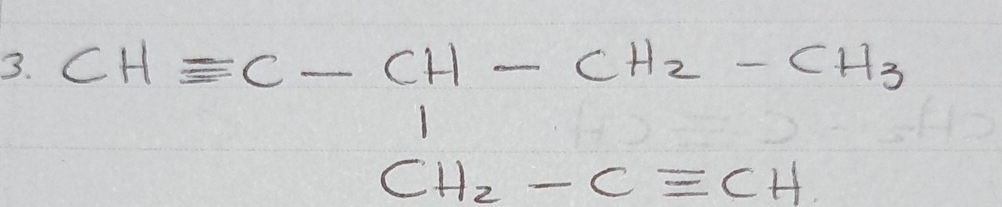 3. CH ≡ C — CH — CH₂ — CH₃
|
CH₂ — C ≡ CH.